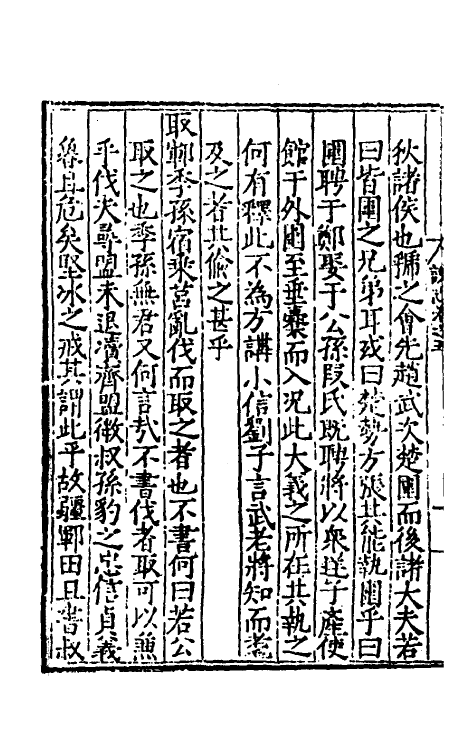 秋諸侯也虢之會先趙武次楚圍而後諸大夫若
曰皆圍之兄弟耳或曰楚勢方張其能執圍乎曰
圍聘于鄭娶于公孫段氏既聘將以衆逆子產使
館于外圍至垂櫜而入况此大義之所在共執之
何有釋此不為方講小信劉子言武老將知而耄
及之者其偷之甚乎
取鄆季孫宿乘莒亂伐而取之者也不書何曰若公
取之也季孫無君又何言㢤不書伐者取可以兼
乎伐矣尋盟未退瀆齊盟微叔孫豹之忠信貞義
魯且危矣堅冰之戒其謂此乎故疆鄆田且書叔